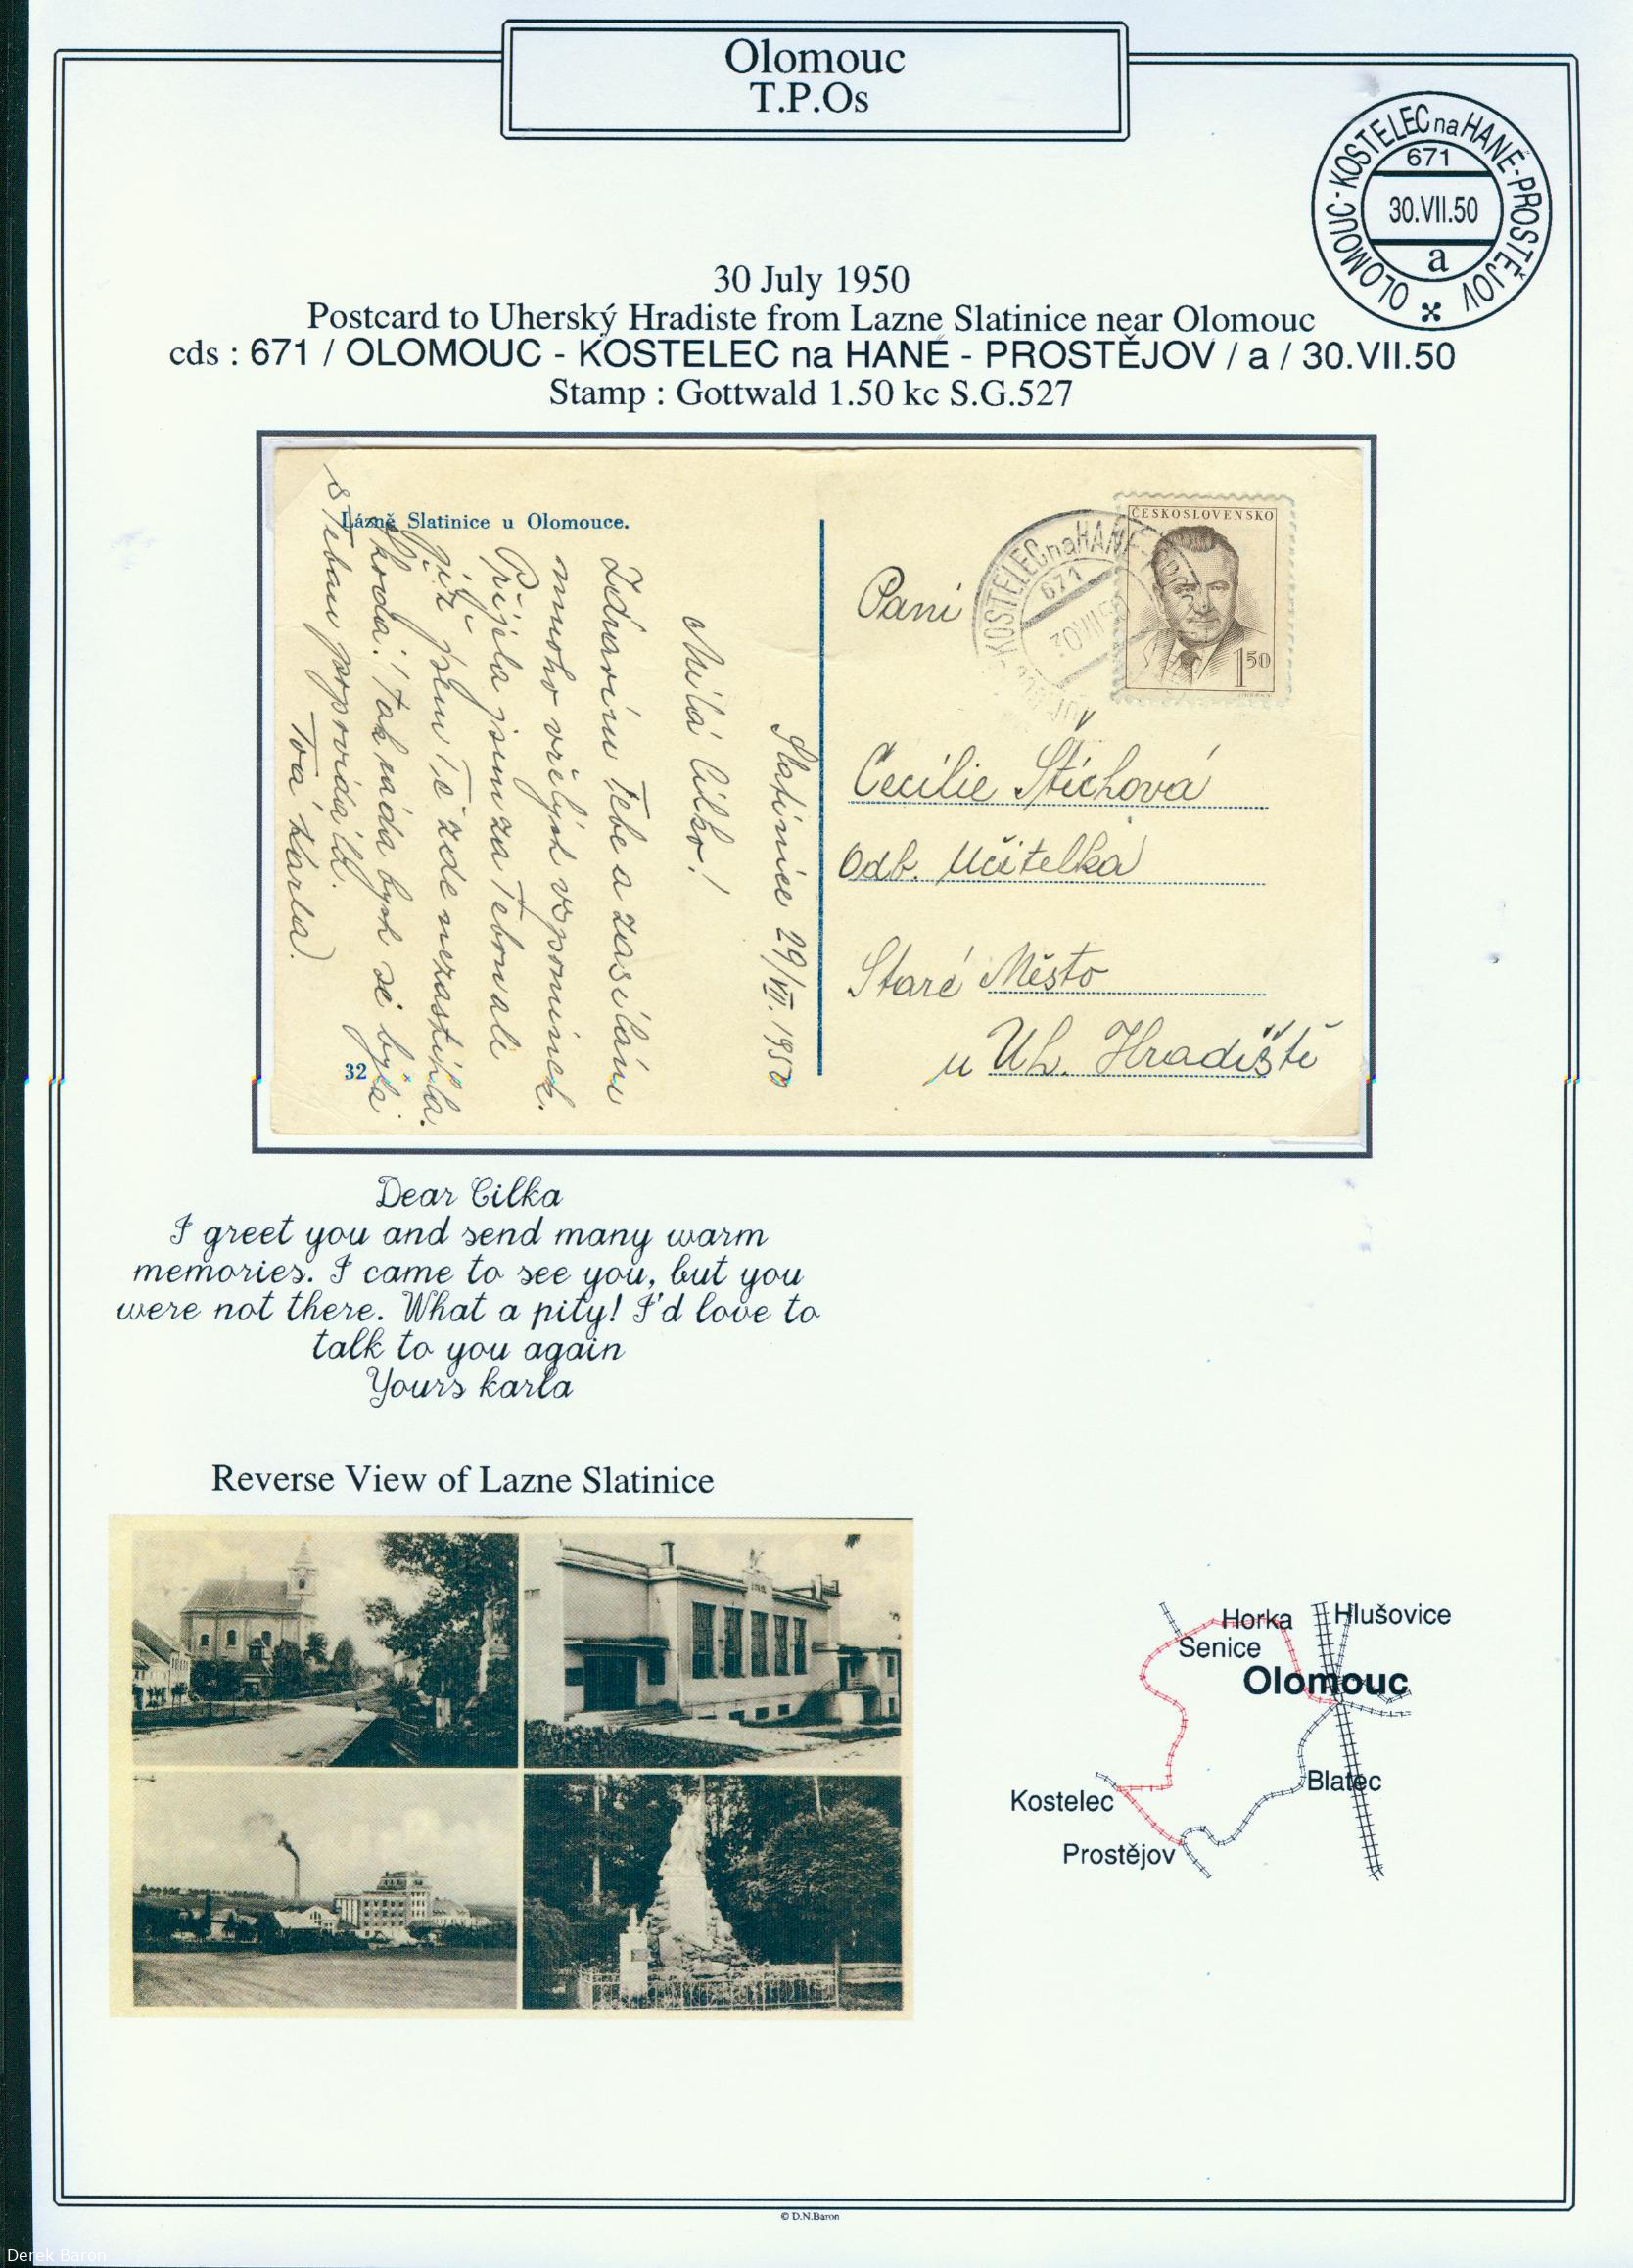 Olomouc
T.P.Os
OLOMOUC - KOSTELEC na HANÉ - PROSTĚJOV
671
30.VII.50
a
30 July 1950
Postcard to Uherský Hradiste from Lazne Slatinice near Olomouc
cds : 671 / OLOMOUC - KOSTELEC na HANÉ - PROSTĚJOV / a / 30.VII.50
Stamp : Gottwald 1.50 kc S.G.527
Lázně Slatinice u Olomouce.
Slatinice 29/VII. 1950
Milá Cilko!
Zdravím Tebe a zasílám
mnoho vřelých vzpomínek.
Přijela jsem za Tebou ale
jsem Tě zde nezastihla.
Škoda! Tak ráda bych si byla
s Tebou popovídala.
Tvá Karla.
32
KOSTELEC na HANÉ
671
30.VII.50
ČESKOSLOVENSKO
1 50
Paní
Cecílie Štichová
Odb. učitelka
Staré Město
u Uh. Hradiště
Dear Cilka
I greet you and send many warm
memories. I came to see you, but you
were not there. What a pity! I'd love to
talk to you again
Yours karla
Reverse View of Lazne Slatinice
Horka
Hlušovice
Senice
Olomouc
Blatec
Kostelec
Prostějov
© D.N.Baron
Derek Baron